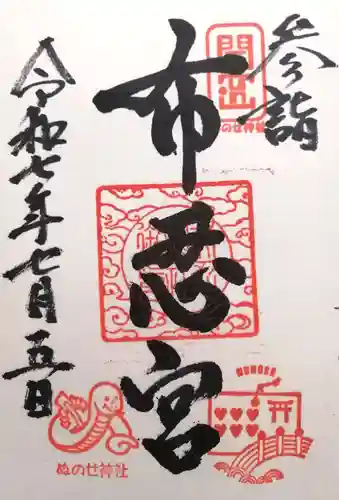 参詣
開運
ぬのせ神社
布忍宮
令和七年七月五日
ぬのせ神社
NUNOSE